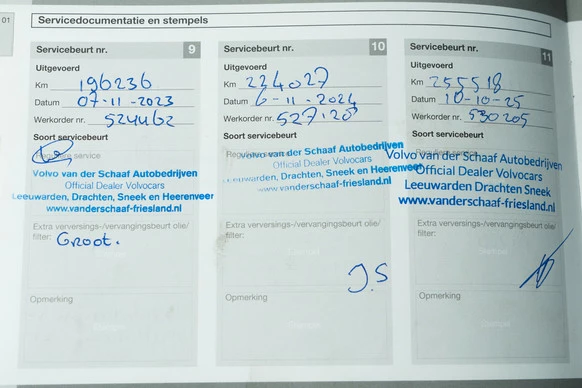 01
Servicedocumentatie en stempels
Servicebeurt nr. 9
Uitgevoerd
Km 196236
Datum 07-11-2023
Werkorder nr. 524462
Soort servicebeurt
Reguliere service
Volvo van der Schaaf Autobedrijven
Official Dealer Volvocars
Leeuwarden, Drachten, Sneek en Heerenveen
www.vanderschaaf-friesland.nl
Extra verversings-/vervangingsbeurt olie/
filter: Groot.
Opmerking
Servicebeurt nr. 10
Uitgevoerd
Km 224027
Datum 6-11-2024
Werkorder nr. 527120
Soort servicebeurt
Volvo van der Schaaf Autobedrijven
Official Dealer Volvocars
Leeuwarden, Drachten, Sneek en Heerenveen
www.vanderschaaf-friesland.nl
Extra verversings-/vervangingsbeurt olie/
filter:
J.S
Opmerking
Servicebeurt nr. 11
Uitgevoerd
Km 255518
Datum 10-10-25
Werkorder nr. 530205
Soort servicebeurt
Volvo van der Schaaf Autobedrijven
Official Dealer Volvocars
Leeuwarden Drachten Sneek
www.vanderschaaf-friesland.nl
Extra verversings-/vervangingsbeurt olie/
filter:
Opmerking